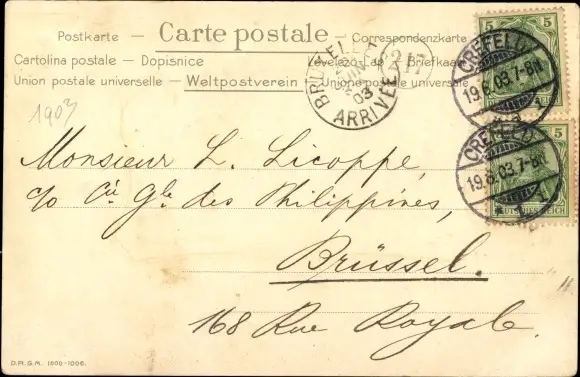 Postkarte — Carte postale — Correspondenzkarte
Cartolina postale — Dopisnice Levelező-Lap — Briefkaart
Union postale universelle — Weltpostverein — Unione postale universale
BRUXELLES
03
ARRIVÉE
5 5
CREFELD
19.6.03.7-8N.
5
CREFELD
19.6.03.7-8N.
DEUTSCHES REICH
1903
Monsieur L. Licoppe,
c/o Cie Gle des Philippines,
Brüssel.
168 Rue Royale.
D.R.G.M. 1600-1006.